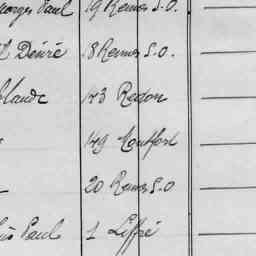 Georges Paul 19 Rennes S.O.
Désiré 18 Rennes S.O.
143 Redon
149 Montfort
20 Rennes S.O
Paul 1 Liffré